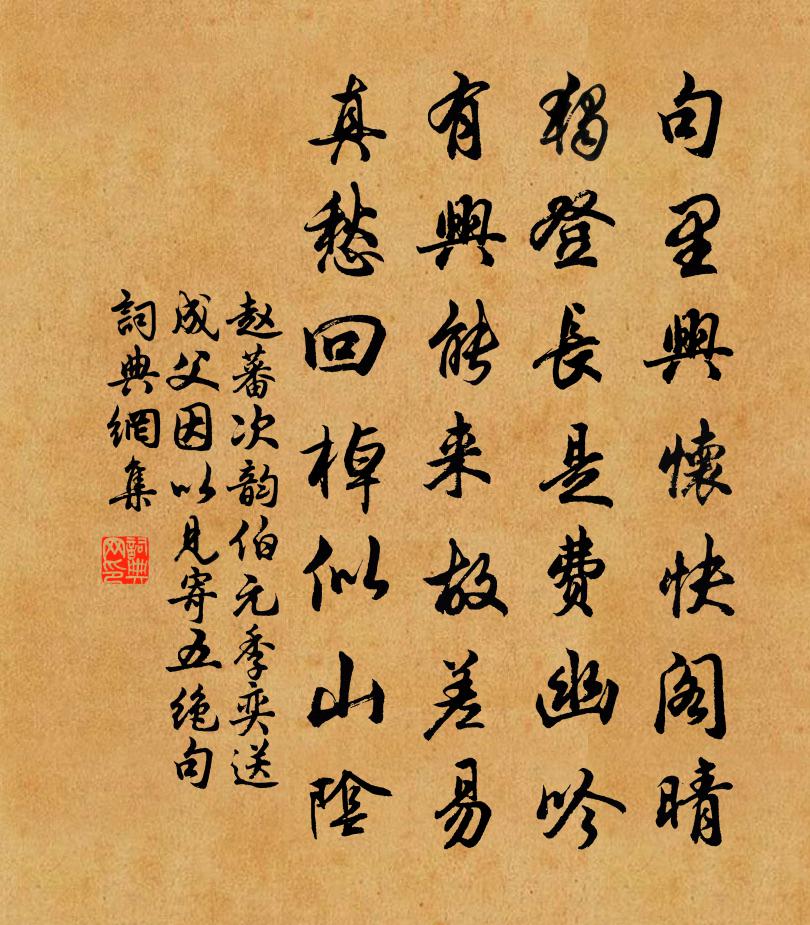 句里興懷快阁晴
獨登長是费幽吟
有興能来故差易
真愁回棹似山陰
赵蕃次韵伯元季奕送
成父因以见寄五绝句
詞典網集
詞典
网印